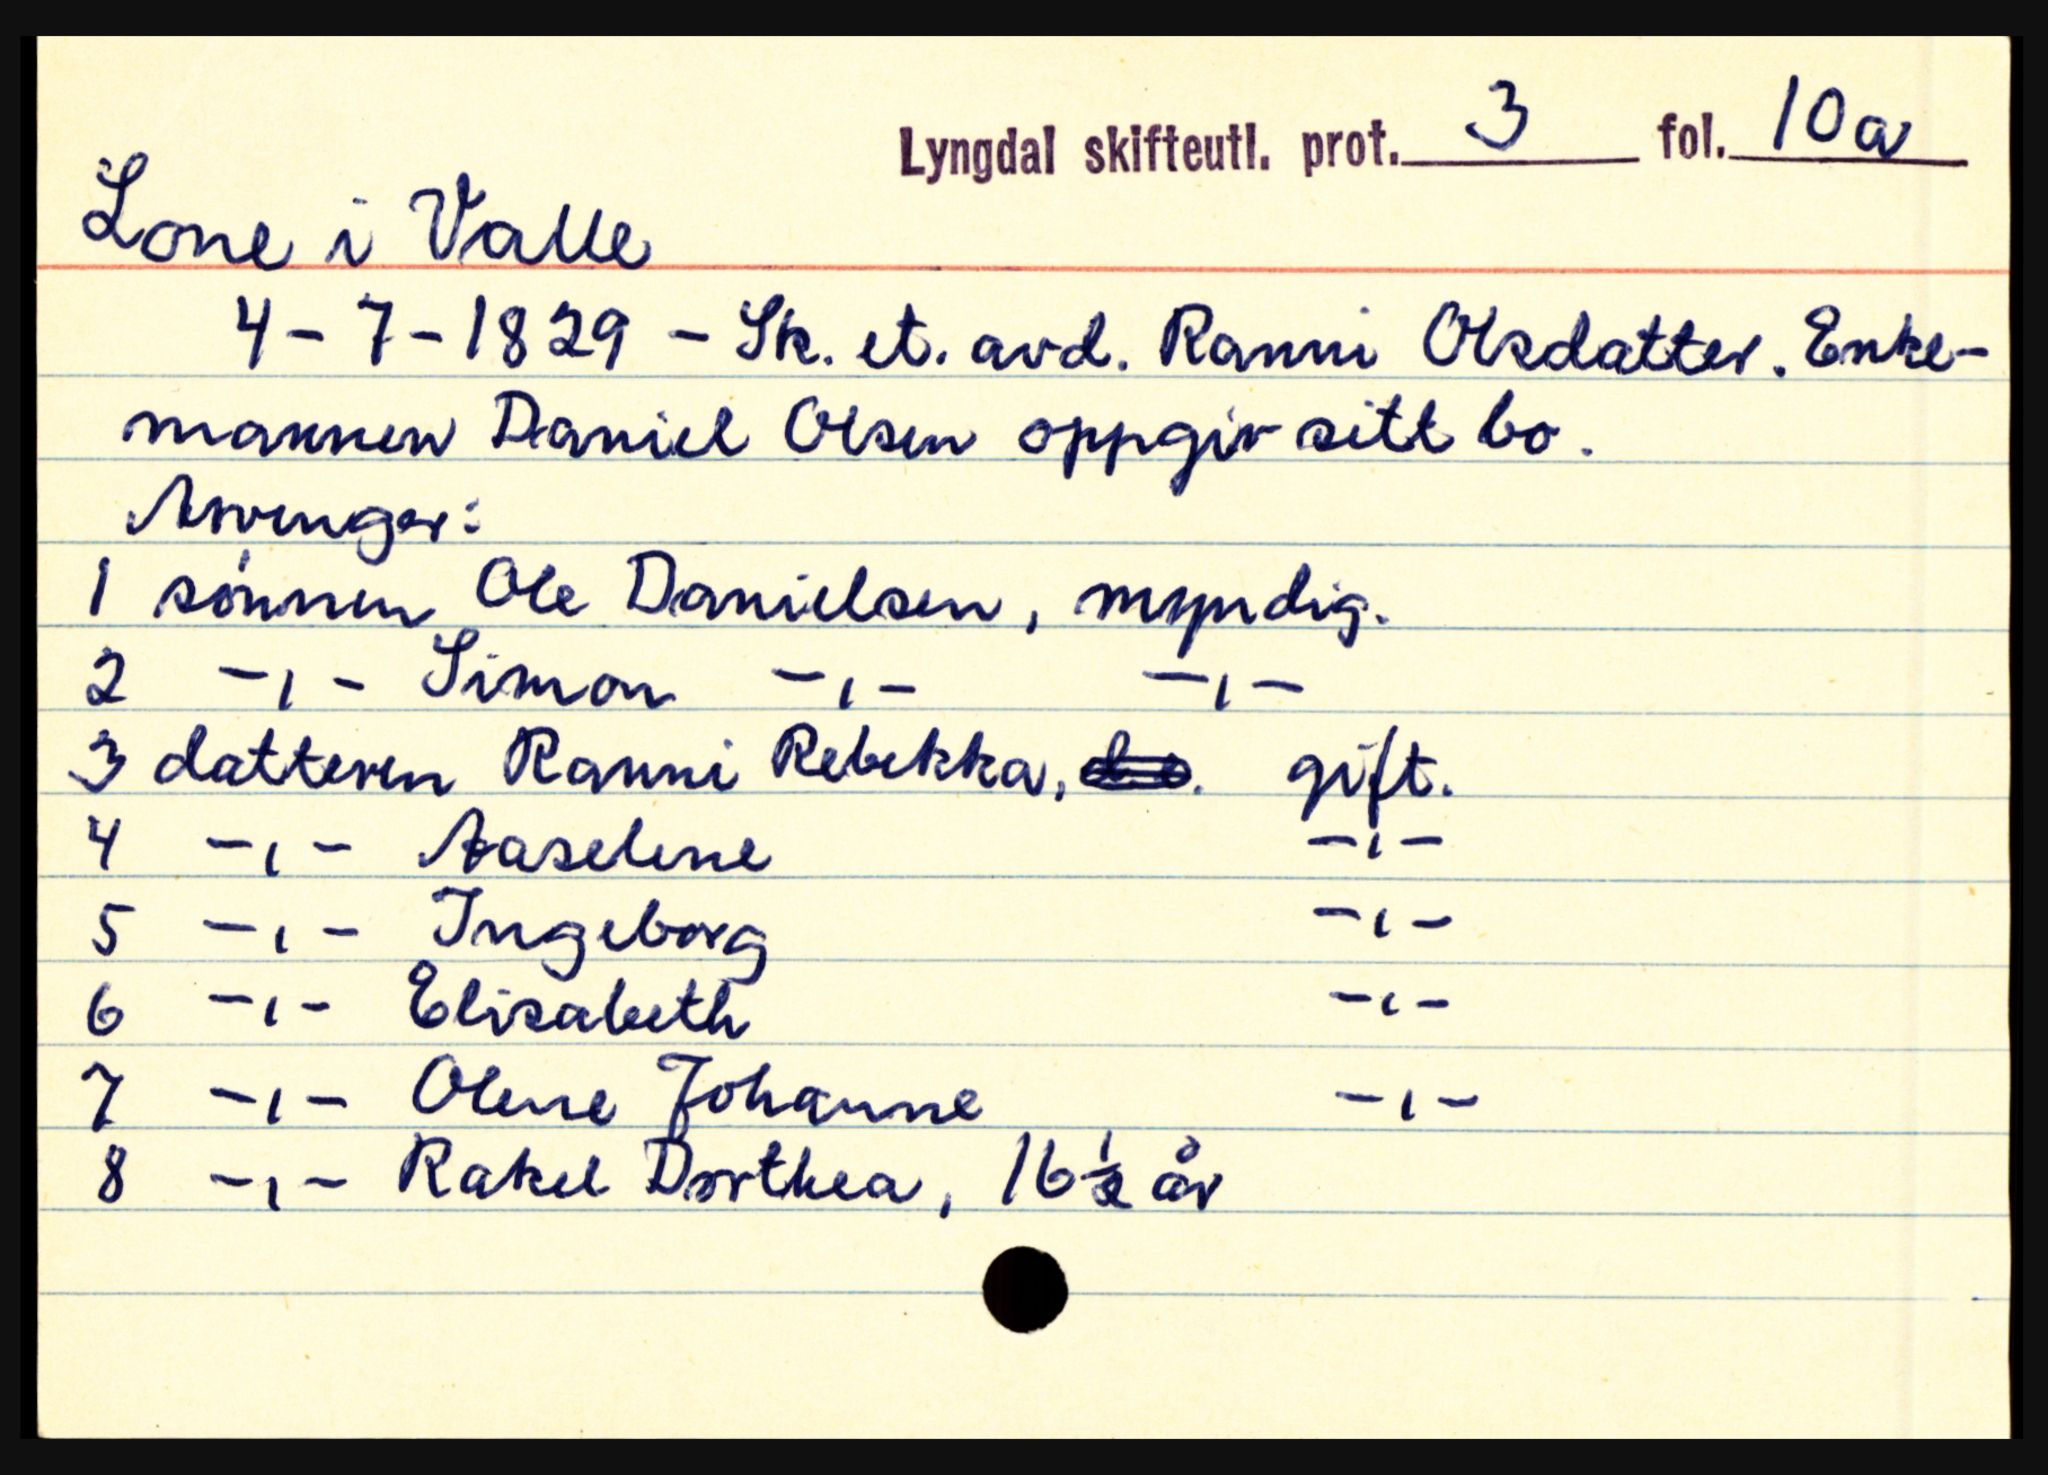 Lyngdal skifteutl. prot. 3 fol. 10a
Lone i Valle
4-7-1829 - Sk. et. avd. Ranni Olsdatter. Enke-
mannen Daniel Olsen oppgir sitt bo.
Arvinger:
1 sønnen Ole Danielsen, myndig.
2 -ı- Simon -ı- -ı-
3 datteren Ranni Rebekka, gift.
4 -ı- Aaselene -ı-
5 -ı- Ingeborg -ı-
6 -ı- Elisabeth -ı-
7 -ı- Olene Johanne -ı-
8 -ı- Rakel Dorthea, 16 ½ år